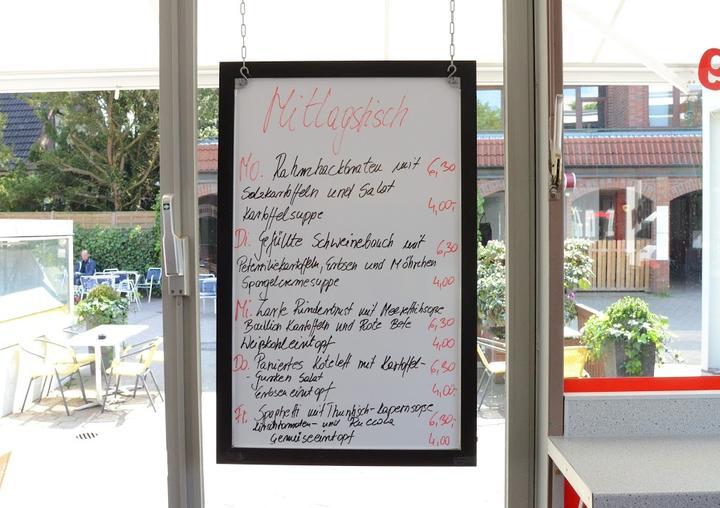 Mittagstisch
Mo. Rahmhackbraten mit 6,30
Salzkartoffeln und Salat
Kartoffelsuppe 4,00,-
Di. Gefüllte Schweinebauch mit 6,30
Petersilienkartoffeln, Erbsen und Möhrchen
Spargelcremesuppe 4,00
Mi. zarte Rinderbrust mit Meerettichsoße
Bouillon Kartoffeln und Rote Bete 6,30
Weißkohleintopf 4,00
Do. Paniertes Kotelett mit Kartoffel- 6,30
-gurken Salat
Erbseneintopf 4,00,-
Fr. Spaghetti mit Thunfisch-Kapernsoße
Kirschtomaten- und Ruccola 6,30,-
Gemüseeintopf 4,00
e